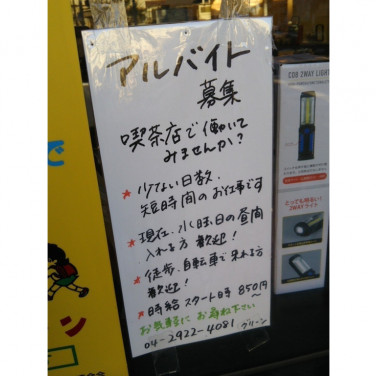 アルバイト
募集
喫茶店で働いて
みませんか?
* 少ない日数.
短時間のお仕事です
* 現在、水曜日の昼間
入れる方 歓迎!
* 徒歩、自転車で来れる方
歓迎!
* 時給 スタート時 850円~
お気軽に お尋ね下さい
04-2922-4081 グリーン
COB 2WAY LIGHT
とっても明るい!
2WAYライト
で
ン